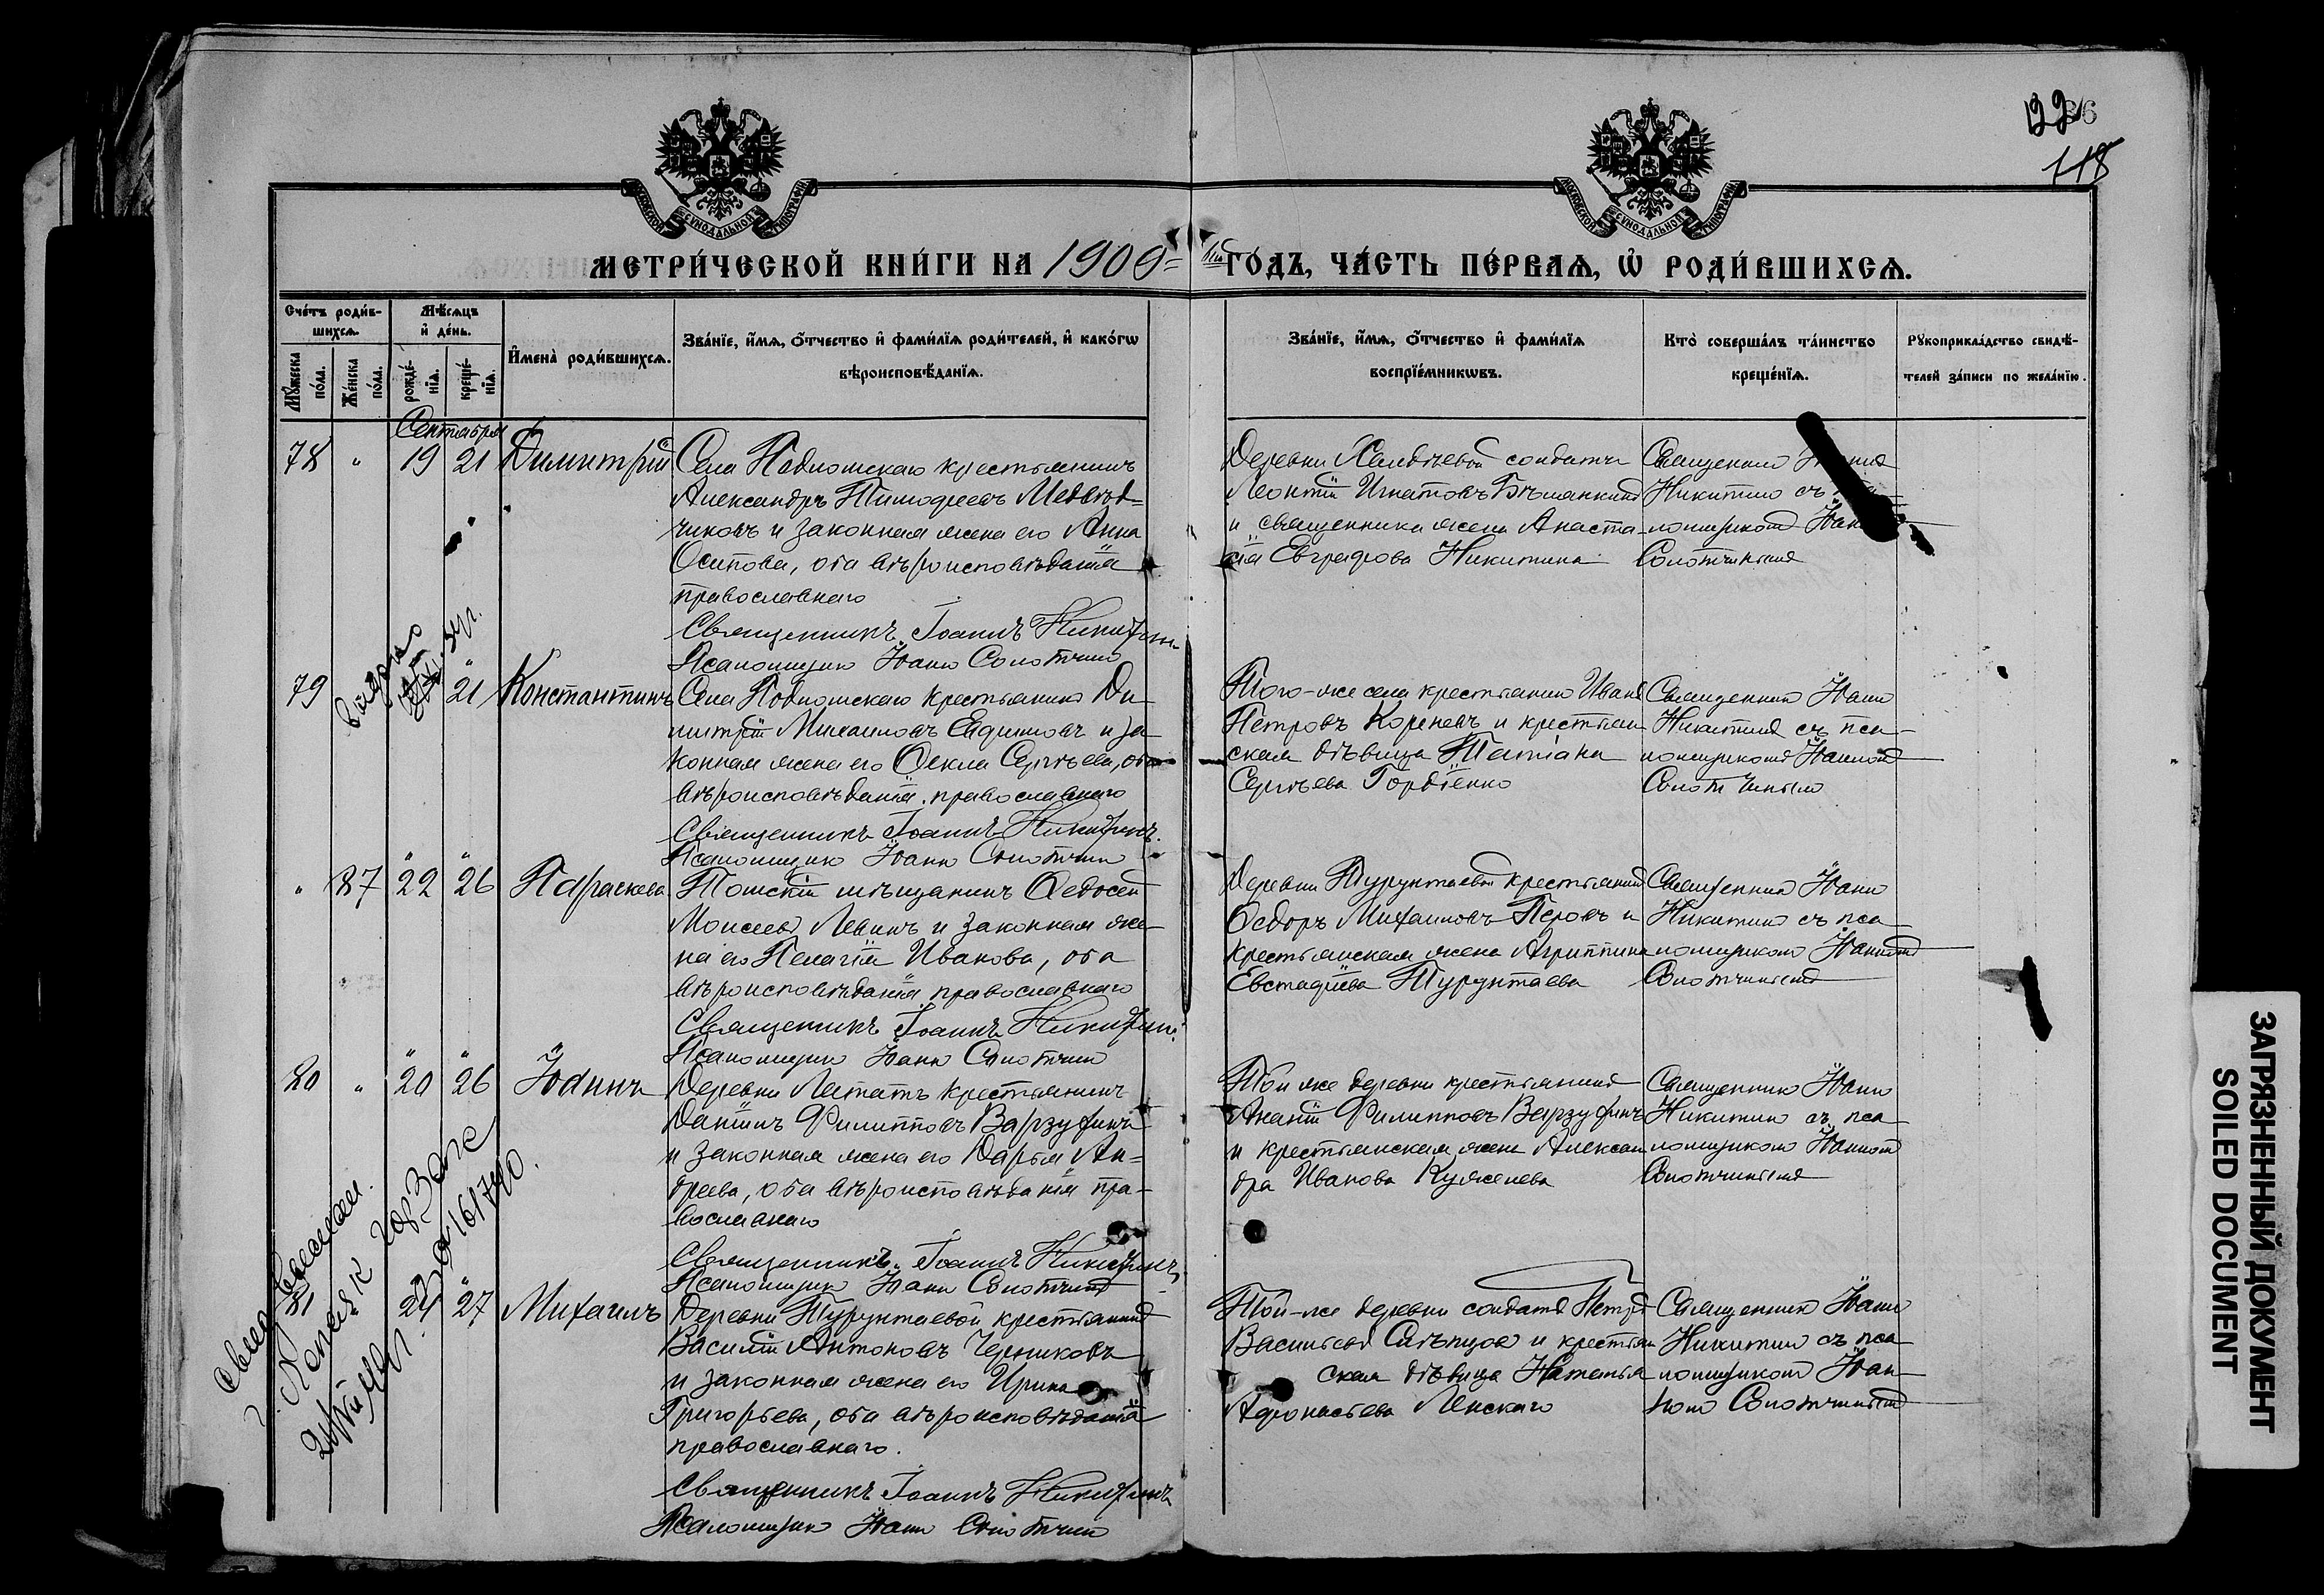 118
МЕТРИ́ЧЕСКОЙ КНИ́ГИ НА 1909 ГО́ДЪ, ЧА́СТЬ ПЕ́РВАѦ, Ѽ РОДИ́ВШИХСѦ.
Сче́тъ роди́в-
шихсѧ.
Мꙋжеска
по́ла.
Же́нска
по́ла.
Мѣ́сѧцъ
и҆ де́нь.
рожде́-
нїѧ.
креще́-
нїѧ.
И҆мена̀ роди́вшихсѧ.
Зва́нїе, и҆́мѧ, ѻ҆́тчество и҆ фами́лїѧ роди́телей, и҆ како́гѡ
вѣроисповѣ́данїѧ.
Зва́нїе, и҆́мѧ, ѻ҆́тчество и҆ фами́лїѧ
воспрїе́мникѡвъ.
Кто̀ соверша́лъ та́инство
креще́нїѧ.
Рꙋкоприкла́дство свидѣ́-
телей за́писи по жела́нїю.
Сентября
78 " 19 21 Димитрій
Села Подломскаго крестьянинъ
Александръ Тимофеевъ Медвѣд-
чиковъ и законная жена его Анна
Осипова, оба вѣроисповѣданія
православнаго
Священникъ Іоаннъ Никитинъ
Псаломщикъ Іоаннъ Солотчинъ
Деревни солдатъ
Леонтій Игнатовъ
и священника жена Анаста-
сія Евграфова Никитина
Священникъ
Никитинъ съ
ломщикомъ
Солотчинымъ
79 21 Константинъ
Села Подломскаго крестьянинъ Ди-
митрій Михаиловъ Евдокимовъ и за-
конная жена его Ѳекла Сергѣева, оба
вѣроисповѣданія православнаго
Священникъ Іоаннъ Никитинъ
Псаломщикъ Іоаннъ Солотчинъ
Того-же села крестьянинъ Иванъ
Петровъ Кореневъ и крестьян-
ская дѣвица Татіана
Сергѣева Гордіенко
Священникъ Іоаннъ
Никитинъ съ пса-
ломщикомъ Іоанномъ
Солотчинымъ
" 87 22 26 Параскева
Томскій мѣщанинъ Ѳедосей
Моисеевъ Левинъ и законная же-
на его Пелагія Иванова, оба
вѣроисповѣданія православнаго
Священникъ Іоаннъ Никитинъ
Псаломщикъ Іоаннъ Солотчинъ
Деревни Турунтаевой крестьянинъ
Ѳедоръ Михаиловъ Перовъ и
крестьянская жена Агриппина
Евстафіева Турунтаева
Священникъ Іоаннъ
Никитинъ съ пса-
ломщикомъ Іоанномъ
Солотчинымъ
80 " 20 26
Деревни Лататъ крестьянинъ
Даніилъ Филипповъ Варзугинъ
и законная жена его Дарья Ан-
дреева, оба вѣроисповѣданія пра-
вославнаго
Священникъ Іоаннъ Никитинъ
Псаломщикъ Іоаннъ Солотчинъ
Той же деревни крестьянинъ
Ананій Филипповъ Варзугинъ
и крестьянская жена Алексан-
дра Иванова
Священникъ Іоаннъ
Никитинъ съ пса-
ломщикомъ Іоанномъ
Солотчинымъ
27 Михаилъ
Деревни Турунтаевой крестьянинъ
Василій Антоновъ Черниковъ
и законная жена его Ирина
Григорьева, оба вѣроисповѣданія
православнаго.
Священникъ Іоаннъ Никитинъ
Псаломщикъ Іоаннъ Солотчинъ
Той-же деревни солдатъ Петръ
Васильевъ Слѣпцовъ и крестьян-
ская дѣвица Наталья
Афонасьева Ленскаго
Священникъ Іоаннъ
Никитинъ съ пса-
ломщикомъ Іоан-
номъ Солотчинымъ
ЗАГРЯЗНЕННЫЙ ДОКУМЕНТ
SOILED DOCUMENT